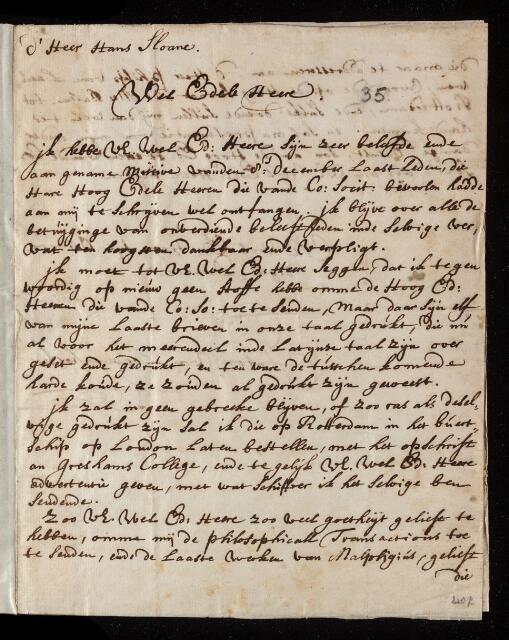 d' Heer Hans Sloane.
Wel Edele Heere.
35.
jk hebbe VE. Wel Ed: Heere Sijn zeer beleefde ende
aan gename Missive vanden d: December Laast Leden, die
Hare Hoog Edele Heeren die vande Co: Soiet: bevoolen hadde
aan mij te Schrijven wel ontfangen, jk blijve over alle de
betuijginge van onverdiende beleeftheden inde Selvige ver
vat ten hoogsten danckbaar ende verpligt.
jk moet tot VE. Wel Ed: Heere Seggen, dat ik tegen
woordig op nieuw geen Stoffe hebbe omme de Hoog Ed:
Heeren die vande Co: So: toe te Senden, maar daar Sijn elf
van mijne Laaste brieven in onze taal gedrukt, die nu
al voor het meerendeel inde Latijnze taal zijn over
geset ende gedrukt, en ten ware de tusschen komende
harde koude, ze zouden al gedrukt zijn geweest.
jk zal in geen gebreeke blijven, of zoo ras als deSel-
vige gedrukt zijn Sal ik die op Rotterdam in het buert
Schip op London Laten bestellen, met het opschrift
an Greshams College, ende te gelijk VE. Wel Ed: Heere
advertentie geven, met wat Schipper ik het Selvige ben
Sendende.
Zoo VE. Wel Ed: Heere zoo veel goetheijt geliefe te
hebben, omme mij de philosophicale Transactions toe
te Senden, ende de Laaste werken van Malphigius, gelieft
die